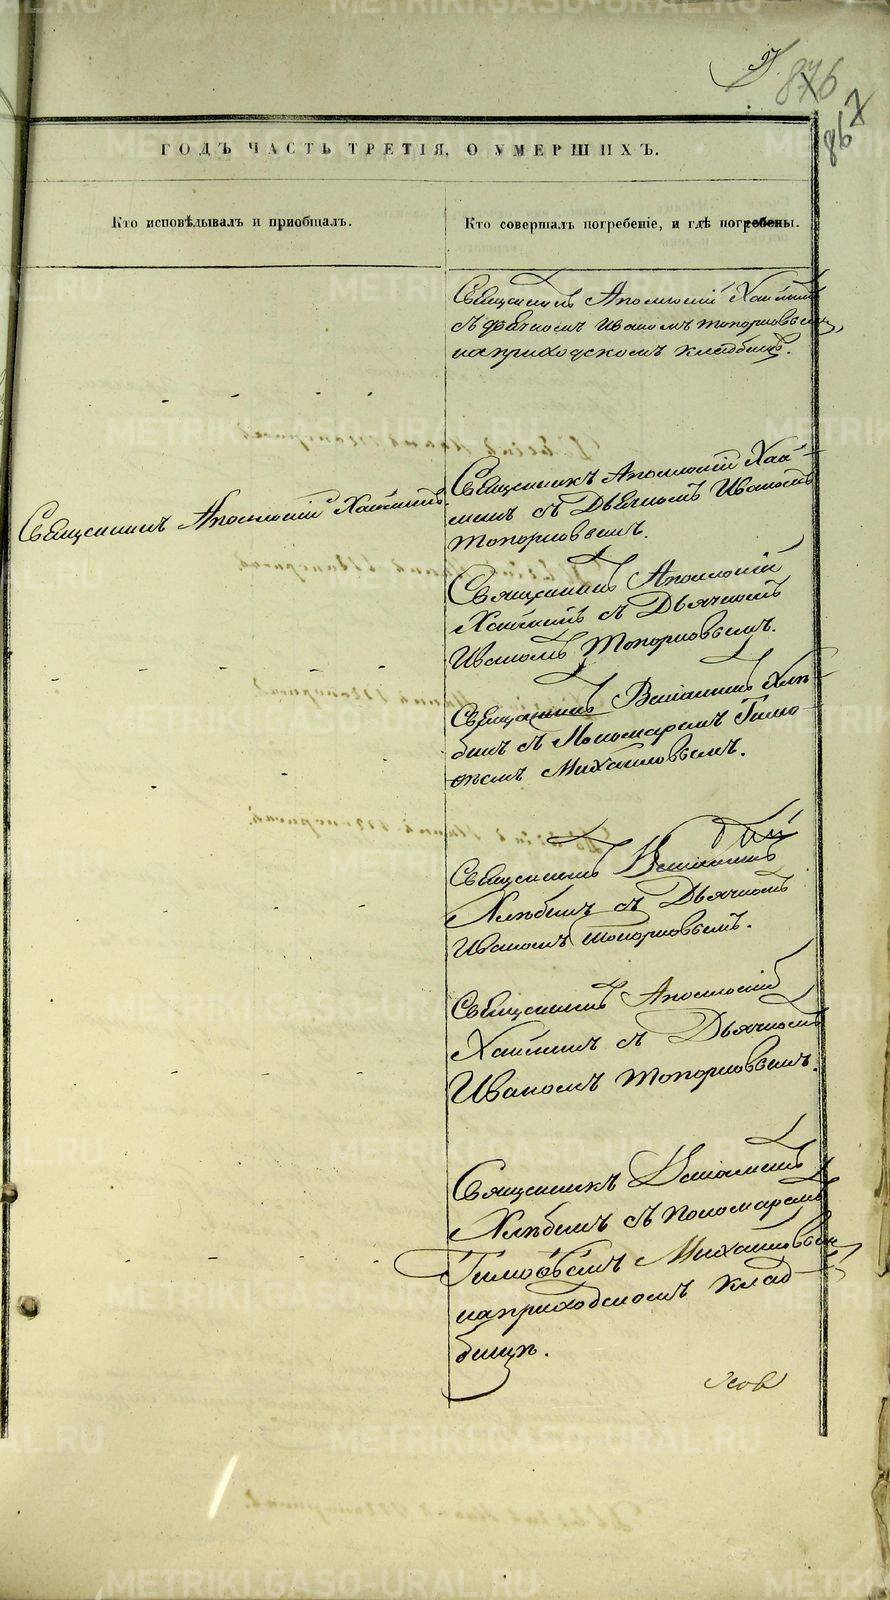 876
867
ГОДЪ ЧАСТЬ ТРЕТІЯ, О УМЕРШИХЪ.
Кто исповѣдывалъ и пріобщалъ.
Кто совершалъ погребеніе, и гдѣ погребены.
Священникъ Аполлоній
съ Дьячкомъ Иваномъ Топорковымъ
на приходскомъ кладбищѣ.
Священникъ Аполлоній
съ Дьячкомъ Иваномъ
Топорковымъ.
Священникъ Аполлоній
Священникъ Аполлоній
съ Дьячкомъ
Иваномъ Топорковымъ.
Священникъ Веніаминъ Хлѣ-
бинъ съ Пономаремъ Тимо-
ѳеемъ Михайловымъ.
Священникъ Веніаминъ
Хлѣбинъ съ Дьячкомъ
Иваномъ Топорковымъ.
Священникъ Аполлоній
съ Дьячкомъ
Иваномъ Топорковымъ.
Священникъ Веніаминъ
Хлѣбинъ съ пономаремъ
Тимоѳеемъ Михайловым
на приходскомъ клад-
бищѣ.